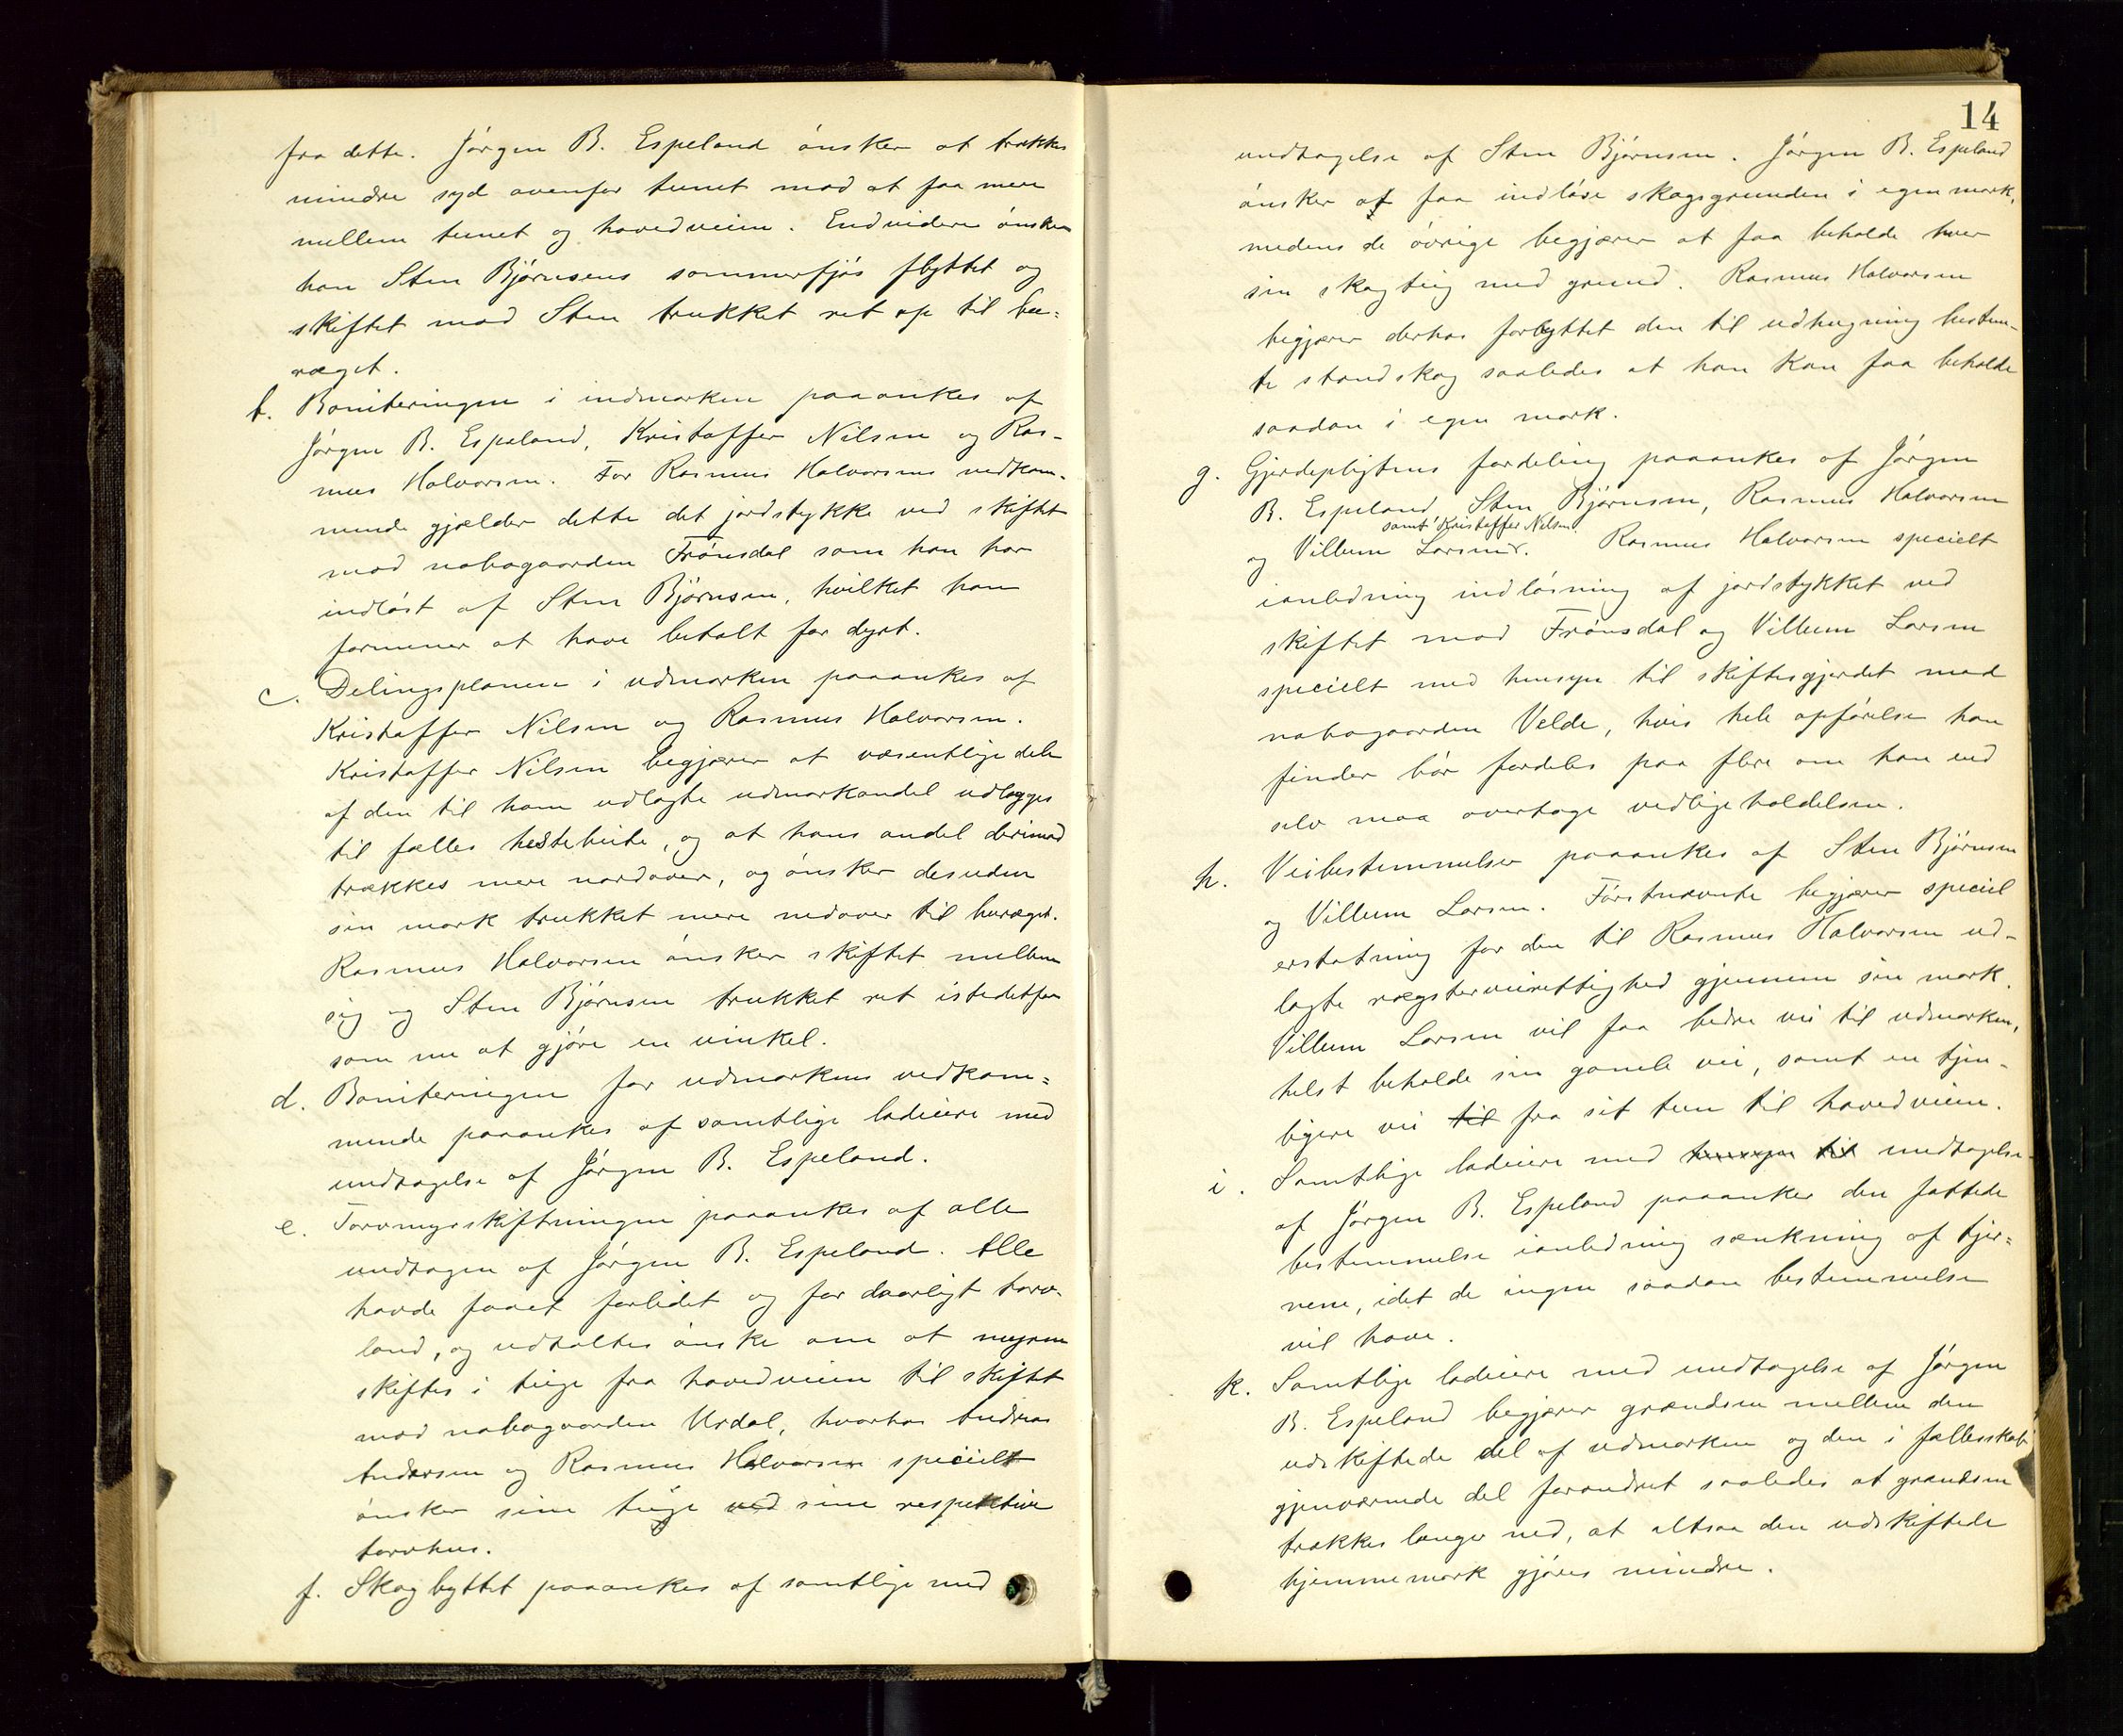 fra dette. Jørgen B. Espeland ønsker at trække
mindre syd ovenfor tunet mod at faa mere
mellem tunet og hovedveien. Endvidere ønsker
han Sten Bjørnsens sommerfjøs flyttet og
skiftet mod Sten trukket ret op til bu-
ræget.
b. Boniteringen i indmarken paaankes af
Jørgen B. Espeland, Kristoffer Nilsen og Ras-
mus Halvorsen. For Rasmus Halvorsens vedkom-
mende gjælder dette det jordstykke ved skiftet
mod nabogaarden Frønsdal som han har
indløst af Sten Bjørnsen, hvilket han
formener at have betalt for dyrt.
c. Delingsplanen i udmarken paaankes af
Kristoffer Nilsen og Rasmus Halvorsen.
Kristoffer Nilsen begjærer at væsentlige dele
af den til ham udlagte udmarkandel udlægges
til fælles hestebeite, og at hans andel derimod
trækkes mere nordover, og ønsker desuden
sin mark trukket mere nedover til buræget.
Rasmus Halvorsen ønsker skiftet mellem
sig og Sten Bjørnsen trukket ret istedetfor
som nu at gjøre en vinkel.
d. Boniteringen for udmarkens vedkom=
mende paaankes af samtlige lodeiere med
undtagelse af Jørgen B. Espeland.
e. Torvmyrskiftningen paaankes af alle
undtagen af Jørgen B. Espeland. Alle
havde faaet forlidet og for daarligt torv-
land, og udtaltes ønske om at myren
skiftes i teige fra hovedveien til skiftet
mod nabogaarden Urdal, hvorhos Andreas
Andersen og Rasmus Halvorsen specielt
ønsker sine teige ved sine respektive
torvhus.
f. Skogbyttet paaankes af samtlige med
14
undtagelse af Sten Bjørnsen. Jørgen B. Espeland
ønsker at faa indløse skogsgrunden i egen mark,
medens de øvrige begjærer at faa beholde hver
sin skogteig med grund. Rasmus Halvorsen
begjærer derhos forbyttet den til udhugning bestem-
te standskog saaledes at han kan faa beholde
saadan i egen mark.
g. Gjerdepligtens fordeling paaankes af Jørgen
B. Espeland, Sten Bjørnsen, Rasmus Halvorsen
samt Kristoffer Nilsen.
og Villum Larsen. Rasmus Halvorsen specielt
ianledning indløsning af jordstykket ved
skiftet mod Frønsdal og Villum Larsen
specielt med hensyn til skiftesgjerdet mod
nabogaarden Velde, hvis hele opførelse han
finder bør fordeles paa flere om han end
selv maa overtage vedligeholdelsen.
h. Veibestemmelser paaankes af Sten Bjørnsen
og Villum Larsen. Førstnævnte begjærer speciel
erstatning for den til Rasmus Halvorsen ud-
lagte rægsterveirettighed gjennem sin mark.
Villum Larsen vil faa bedre vei til udmarken,
helst beholde sin gamle vei, samt en tjen-
ligere vei til fra sit tun til hovedveien.
i. Samtlige lodeiere med hensyn til undtagelse
af Jørgen B. Espeland paaanker den fattede
bestemmelse ianledning sænkning af tjer=
nene, idet de ingen saadan bestemmelse
vil have.
k. Samtlige lodeiere med undtagelse af Jørgen
B. Espeland begjærer grændsen mellem den
udskiftede del af udmarken og den i fællesskab
gjenværende del forandret saaledes at grændsen
trækkes længer ned, at altsaa den udskiftede
hjemmemark gjøres mindre.